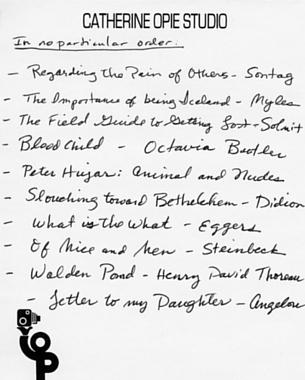 CATHERINE OPIE STUDIO
In no particular order:
- Regarding the Pain of Others - Sontag
- The Importance of being Iceland - Myles
- The Field Guide to Getting Lost - Solnit
- Blood Child - Octavia Butler
- Peter Hujar: Animal and Nudes
- Slouching toward Bethelehem - Didion
- What is the What - Eggers
- Of Mice and Men - Steinbeck
- Walden Pond - Henry David Thoreau
- Letter to my Daughter - Angelou
OP